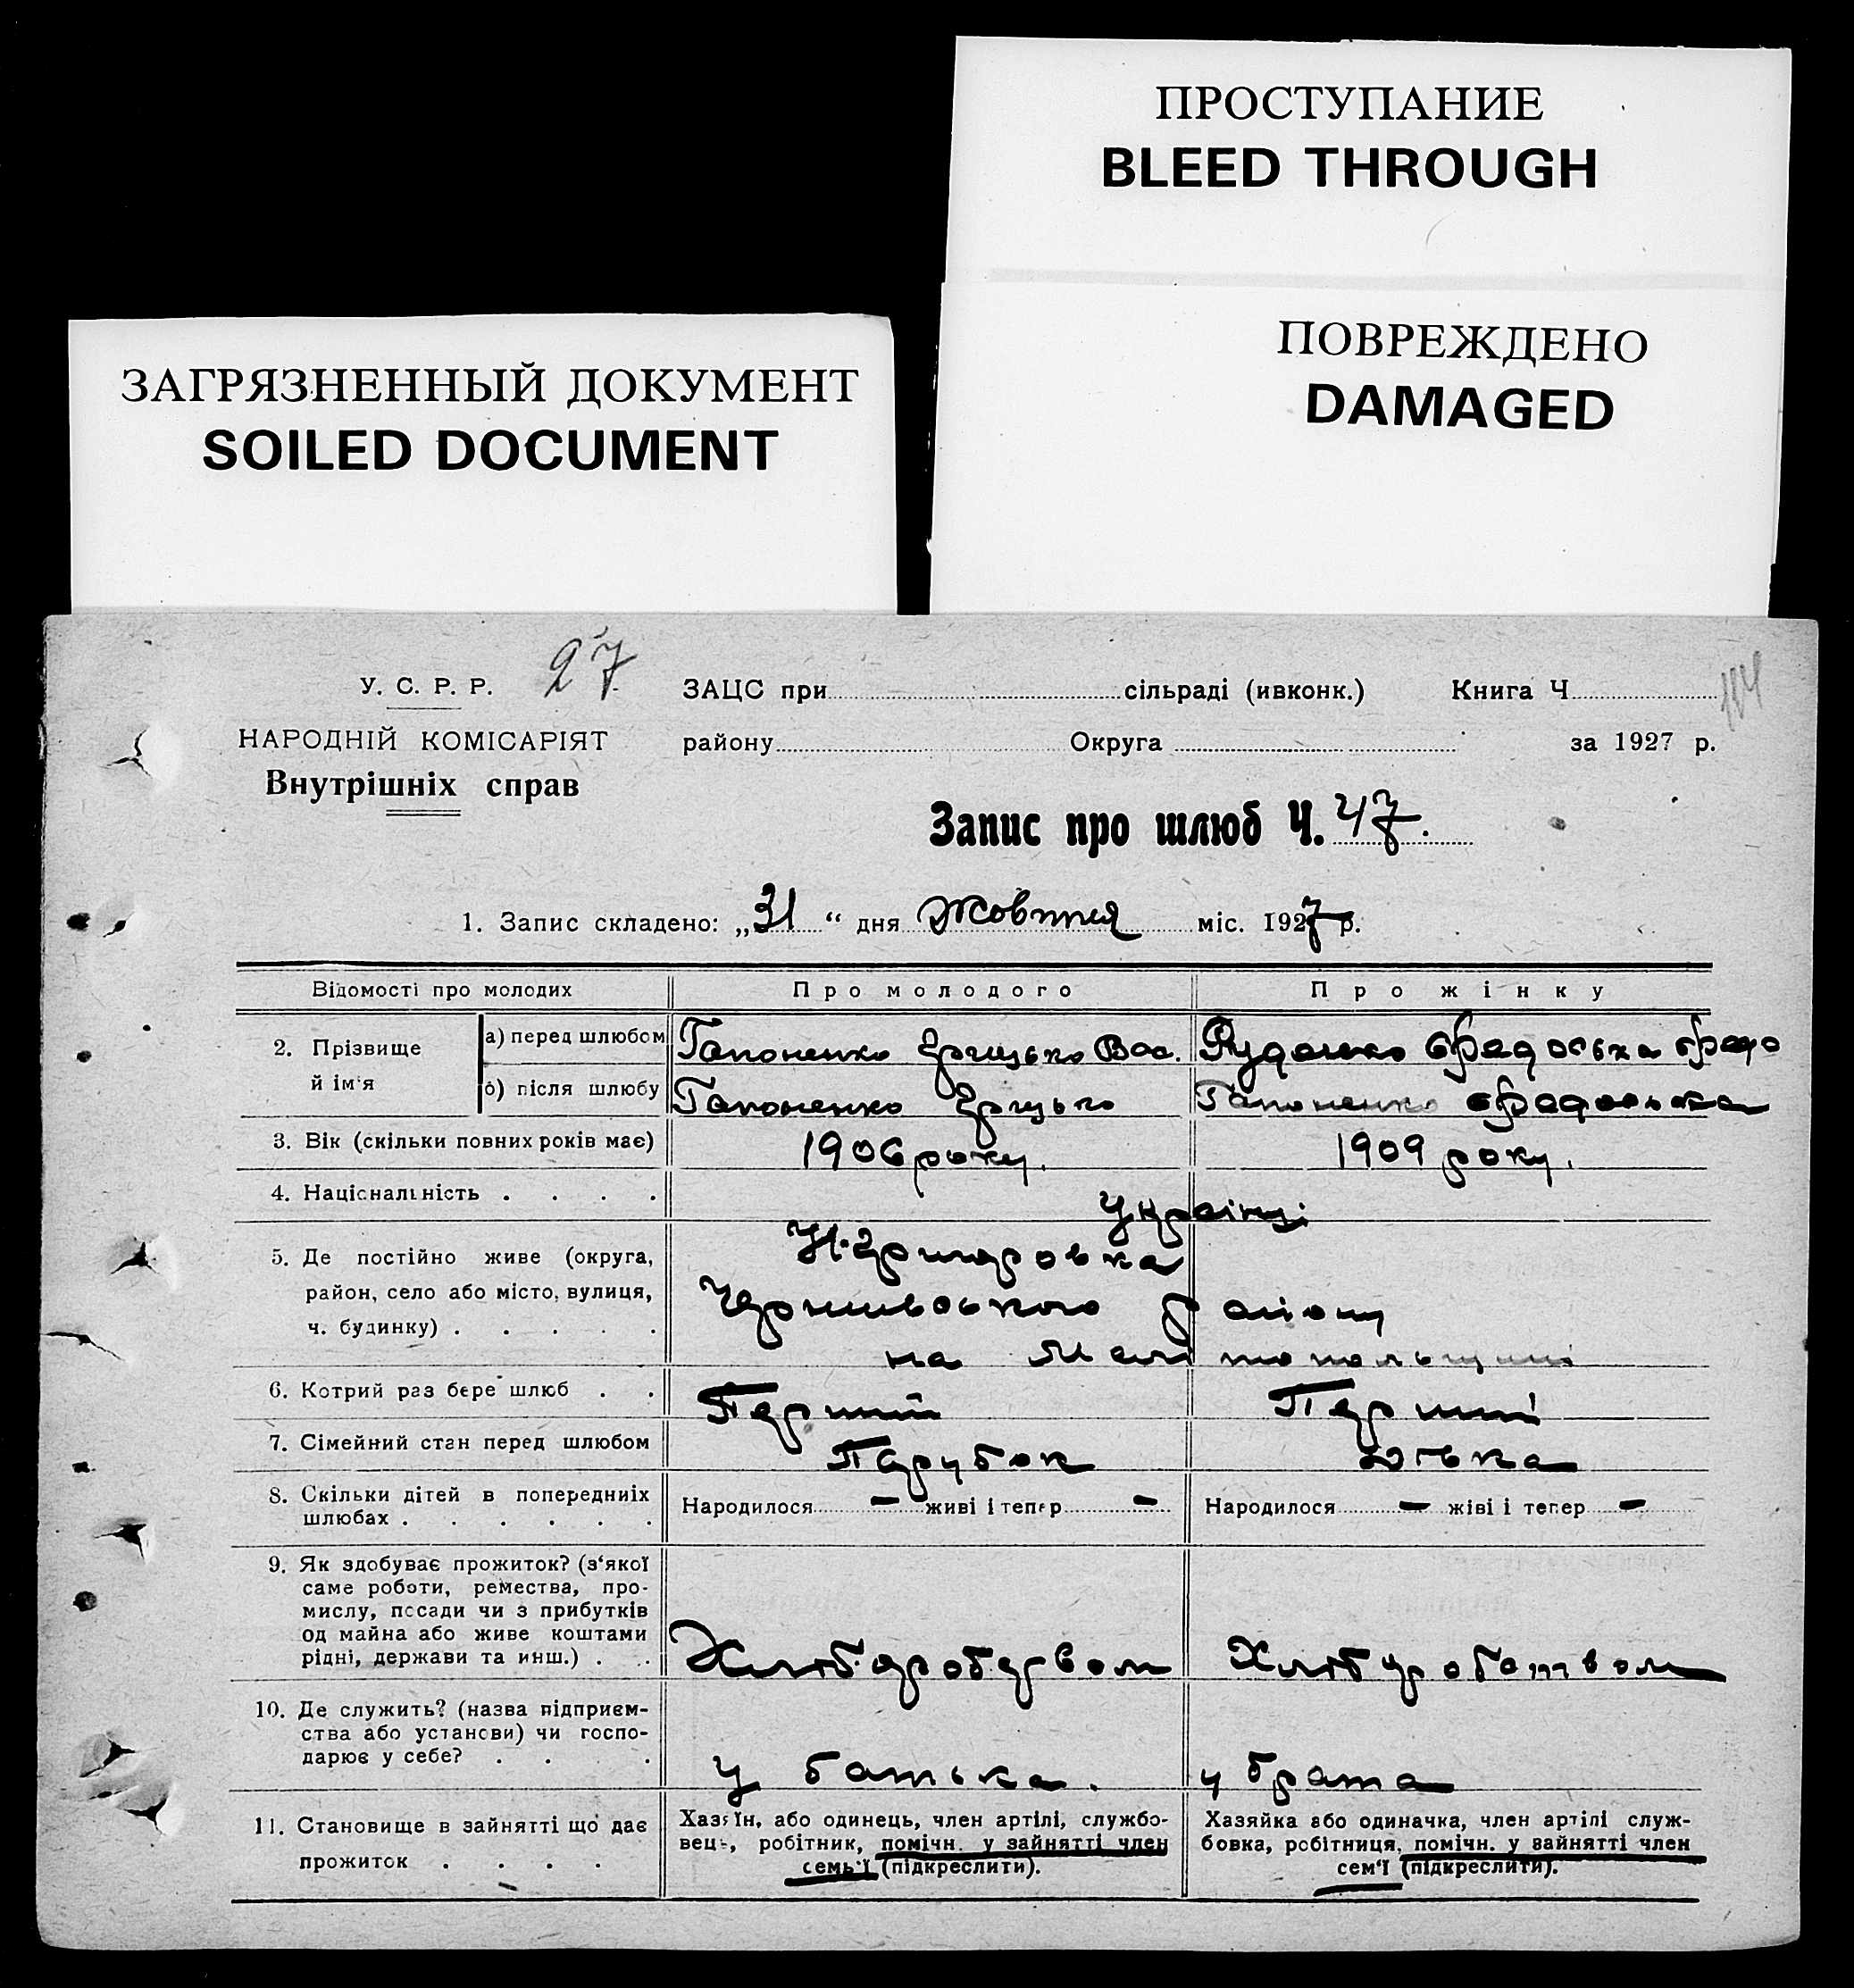 ПРОСТУПАНИЕ
BLEED THROUGH
ПОВРЕЖДЕНО
DAMAGED
ЗАГРЯЗНЕННЫЙ ДОКУМЕНТ
SOILED DOCUMENT
У. С. Р. Р. 27
ЗАЦС при сільраді (ивконк.) Книга Ч
НАРОДНІЙ КОМІСАРІЯТ
району Округа за 1927 р.
Внутрішніх справ
Запис про шлюб Ч. 47.
1. Запис складено: „31“ дня Жовтня міс. 1927 р.
Відомості про молодих Про молодого Про жінку
2. Прізвище й ім'я
а) перед шлюбом Гапоненко Грицько Вас. Руденко
б) після шлюбу Гапоненко Грицько Гапоненко
3. Вік (скільки повних років має) 1906 року. 1909 року.
4. Національність . . . . українці
5. Де постійно живе (округа,
район, село або місто, вулиця,
ч. будинку) . . . . .
Н-Григоровка
Чернивського району
на Мелітопольщині
6. Котрий раз бере шлюб . . Перший Перший
7. Сімейний стан перед шлюбом Парубок Дівка
8. Скільки дітей в попередниіх
шлюбах . . . . . .
Народилося - живі і тепер - Народилося - жіві і тепер -
9. Як здобуває прожиток? (з'якої
саме роботи, ремества, про-
мислу, посади чи з прибутків
од майна або живе коштами
рідні, держави та инш.) . . .
Хліборобством
10. Де служить? (назва підприєм-
ства або установи) чи госпо-
дарює у себе? . . . .
у батька. у брата
11. Становище в зайнятті що дає
прожиток . . . .
Хазяїн, або одинець, член артілі, службо-
вець, робітник, помічн. у зайнятті член
семь'ї (підкреслити).
Хазяйка або одиначка, член артілі служ-
бовка, робітниця, помічн. у зайнятті член
сем'ї (підкреслити).